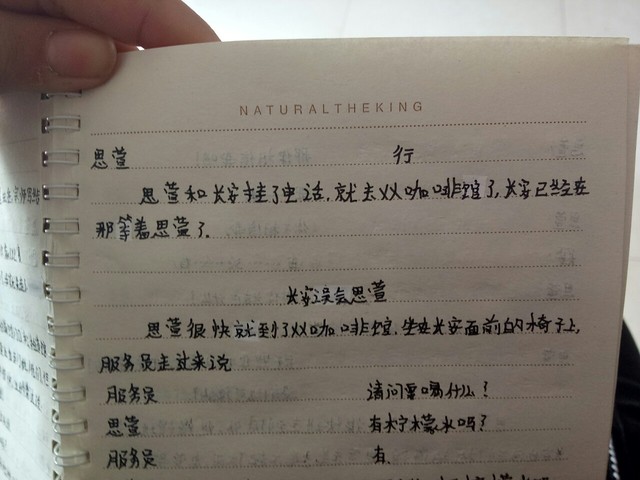 NATURALTHEKING
思萱 行
思萱和长安挂了电话,就去XX咖啡馆了,长安已经在
那等着思萱了.
长安误会思萱
思萱很快就到了XX咖啡馆,坐在长安面前的椅子上,
服务员走过来说
服务员 请问要喝什么?
思萱 有柠檬水吗?
服务员 有.